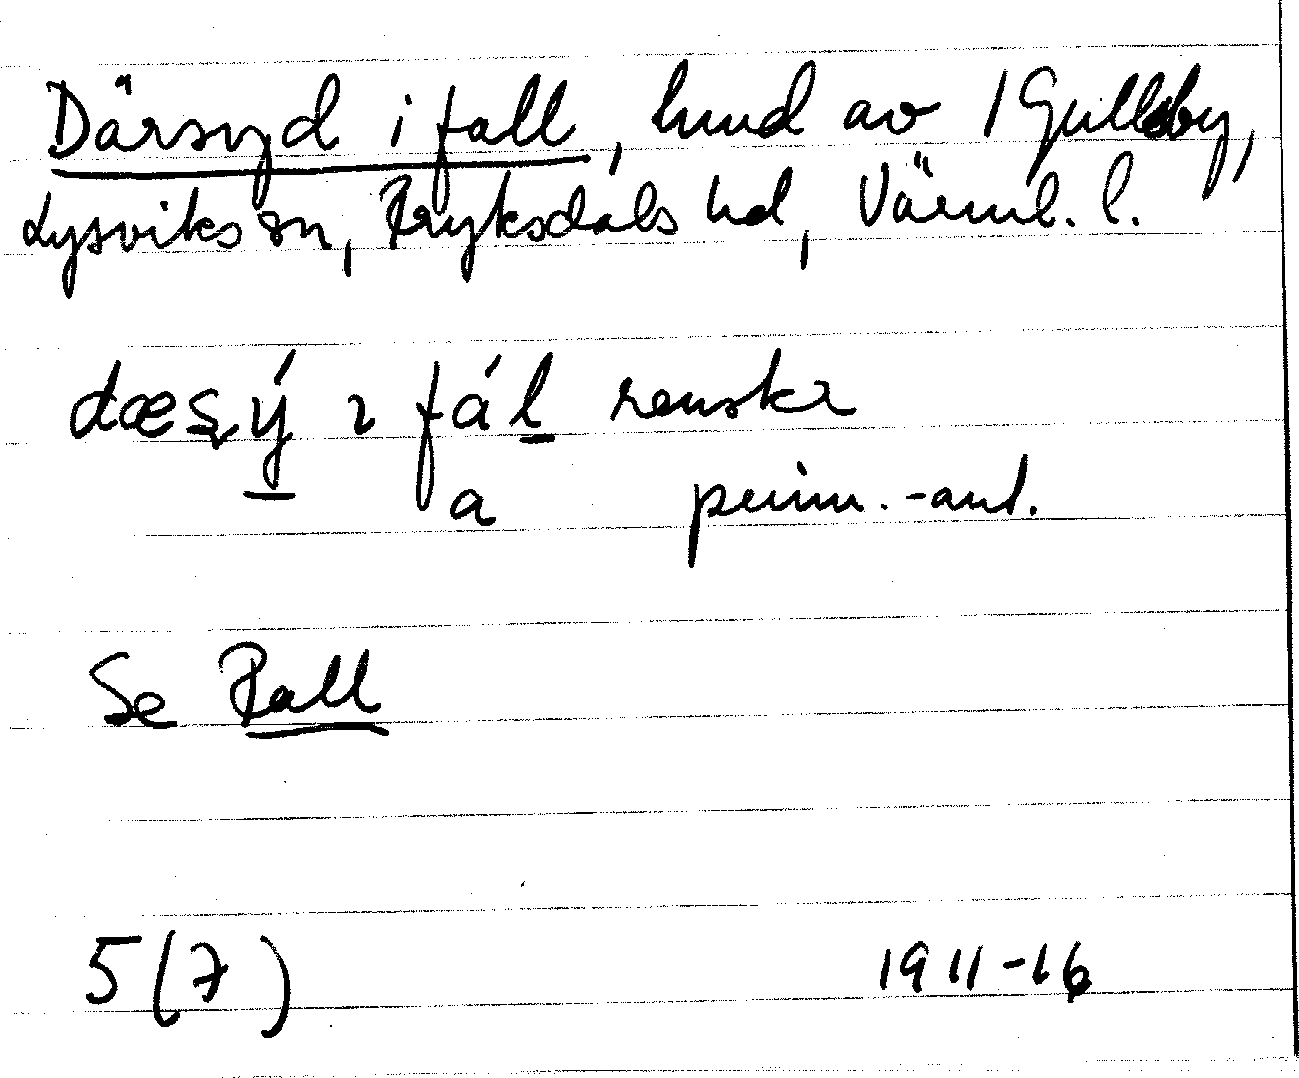 Därsyd i fall, lund av 1 Gullsby,
Lysviks sn, Fryksdals hd, Värml. l.
dæșý ı fál
a prim.-ant.
Se Fall
5(7) 1911-16